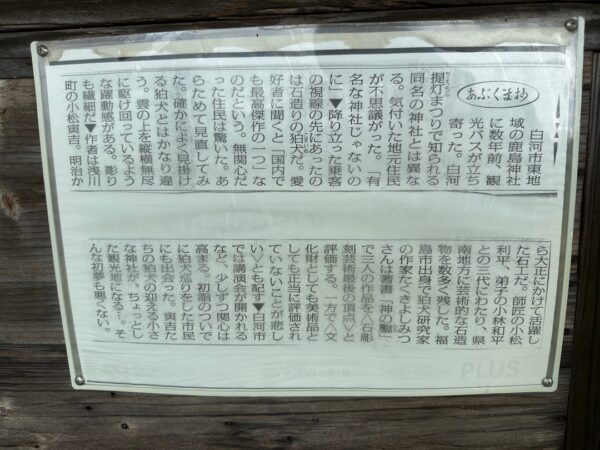 あぶくま抄
白河市東地
域の鹿島神社
に数年前、観
光バスが立ち
寄った。白河
提灯まつりで知られる
同名の神社とは異な
る。気付いた地元住民
が不思議がった。「有
名な神社じゃないの
に」▼降り立った乗客
の視線の先にあったの
は石造りの狛犬だ。愛
好者に聞くと「国内で
も最高傑作の一つ」な
のだという。無関心だ
った住民は驚いた。あ
らためて見直してみ
た。確かによく見掛け
る狛犬とはかなり違
う。雲の上を縦横無尽
に駆け回っているよう
な躍動感がある。彫り
も繊細だ▼作者は浅川
町の小松寅吉。明治か
ら大正にかけて活躍し
た石工だ。師匠の小松
利平、弟子の小林和平
との三代にわたり、県
南地方に芸術的な石造
物を数多く残した。福
島市出身で狛犬研究家
の作家たくきよしみつ
さんは著書「神の鑿」
で三人の作品を〈石彫
刻芸術最後の頂点〉と
評価する。一方で〈文
化財としても美術品と
しても正当に評価され
ていないことが悲し
い〉とも記す▼白河市
では講演会が開かれる
など、少しずつ関心は
高まる。初詣のついで
に狛犬巡りをした市民
にも出会った。寅吉た
ちの狛犬の迎える小さ
な神社が、ちょっとし
た観光地になる…。そ
んな初夢も悪くない。
PLU